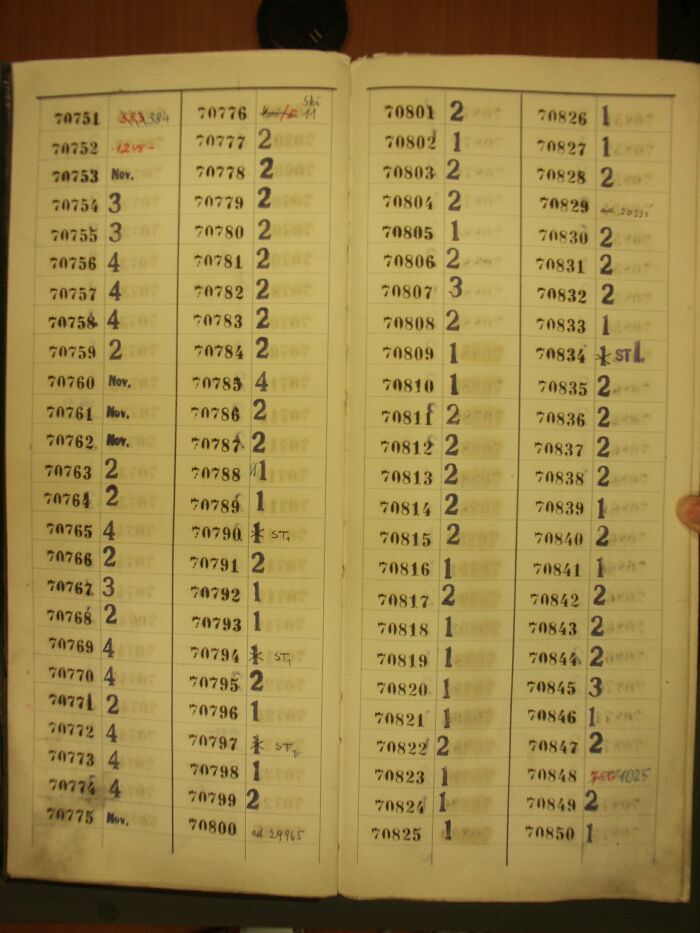 70751 384
70752
70753 Nov.
70754 3
70755 3
70756 4
70757 4
70758 4
70759 2
70760 Nov.
70761 Nov.
70762 Nov.
70763 2
70764 2
70765 4
70766 2
70767 3
70768 2
70769 4
70770 4
70771 2
70772 4
70773 4
70774 4
70775 Nov.
70776 11
70777 2
70778 2
70779 2
70780 2
70781 2
70782 2
70783 2
70784 2
70785 4
70786 2
70787 2
70788 1
70789 1
70790 1 ST1
70791 2
70792 1
70793 1
70794 1 ST1
70795 2
70796 1
70797 1 ST1
70798 1
70799 2
70800 ad 29965
70801 2
70802 1
70803 2
70804 2
70805 1
70806 2
70807 3
70808 2
70809 1
70810 1
70811 2
70812 2
70813 2
70814 2
70815 2
70816 1
70817 2
70818 1
70819 1
70820 1
70821 1
70822 2
70823 1
70824 1
70825 1
70826 1
70827 1
70828 2
70829
70830 2
70831 2
70832 2
70833 1
70834 1 ST1.
70835 2
70836 2
70837 2
70838 2
70839 1
70840 2
70841 1
70842 2
70843 2
70844 2
70845 3
70846 1
70847 2
70848 786 1025
70849 2
70850 1